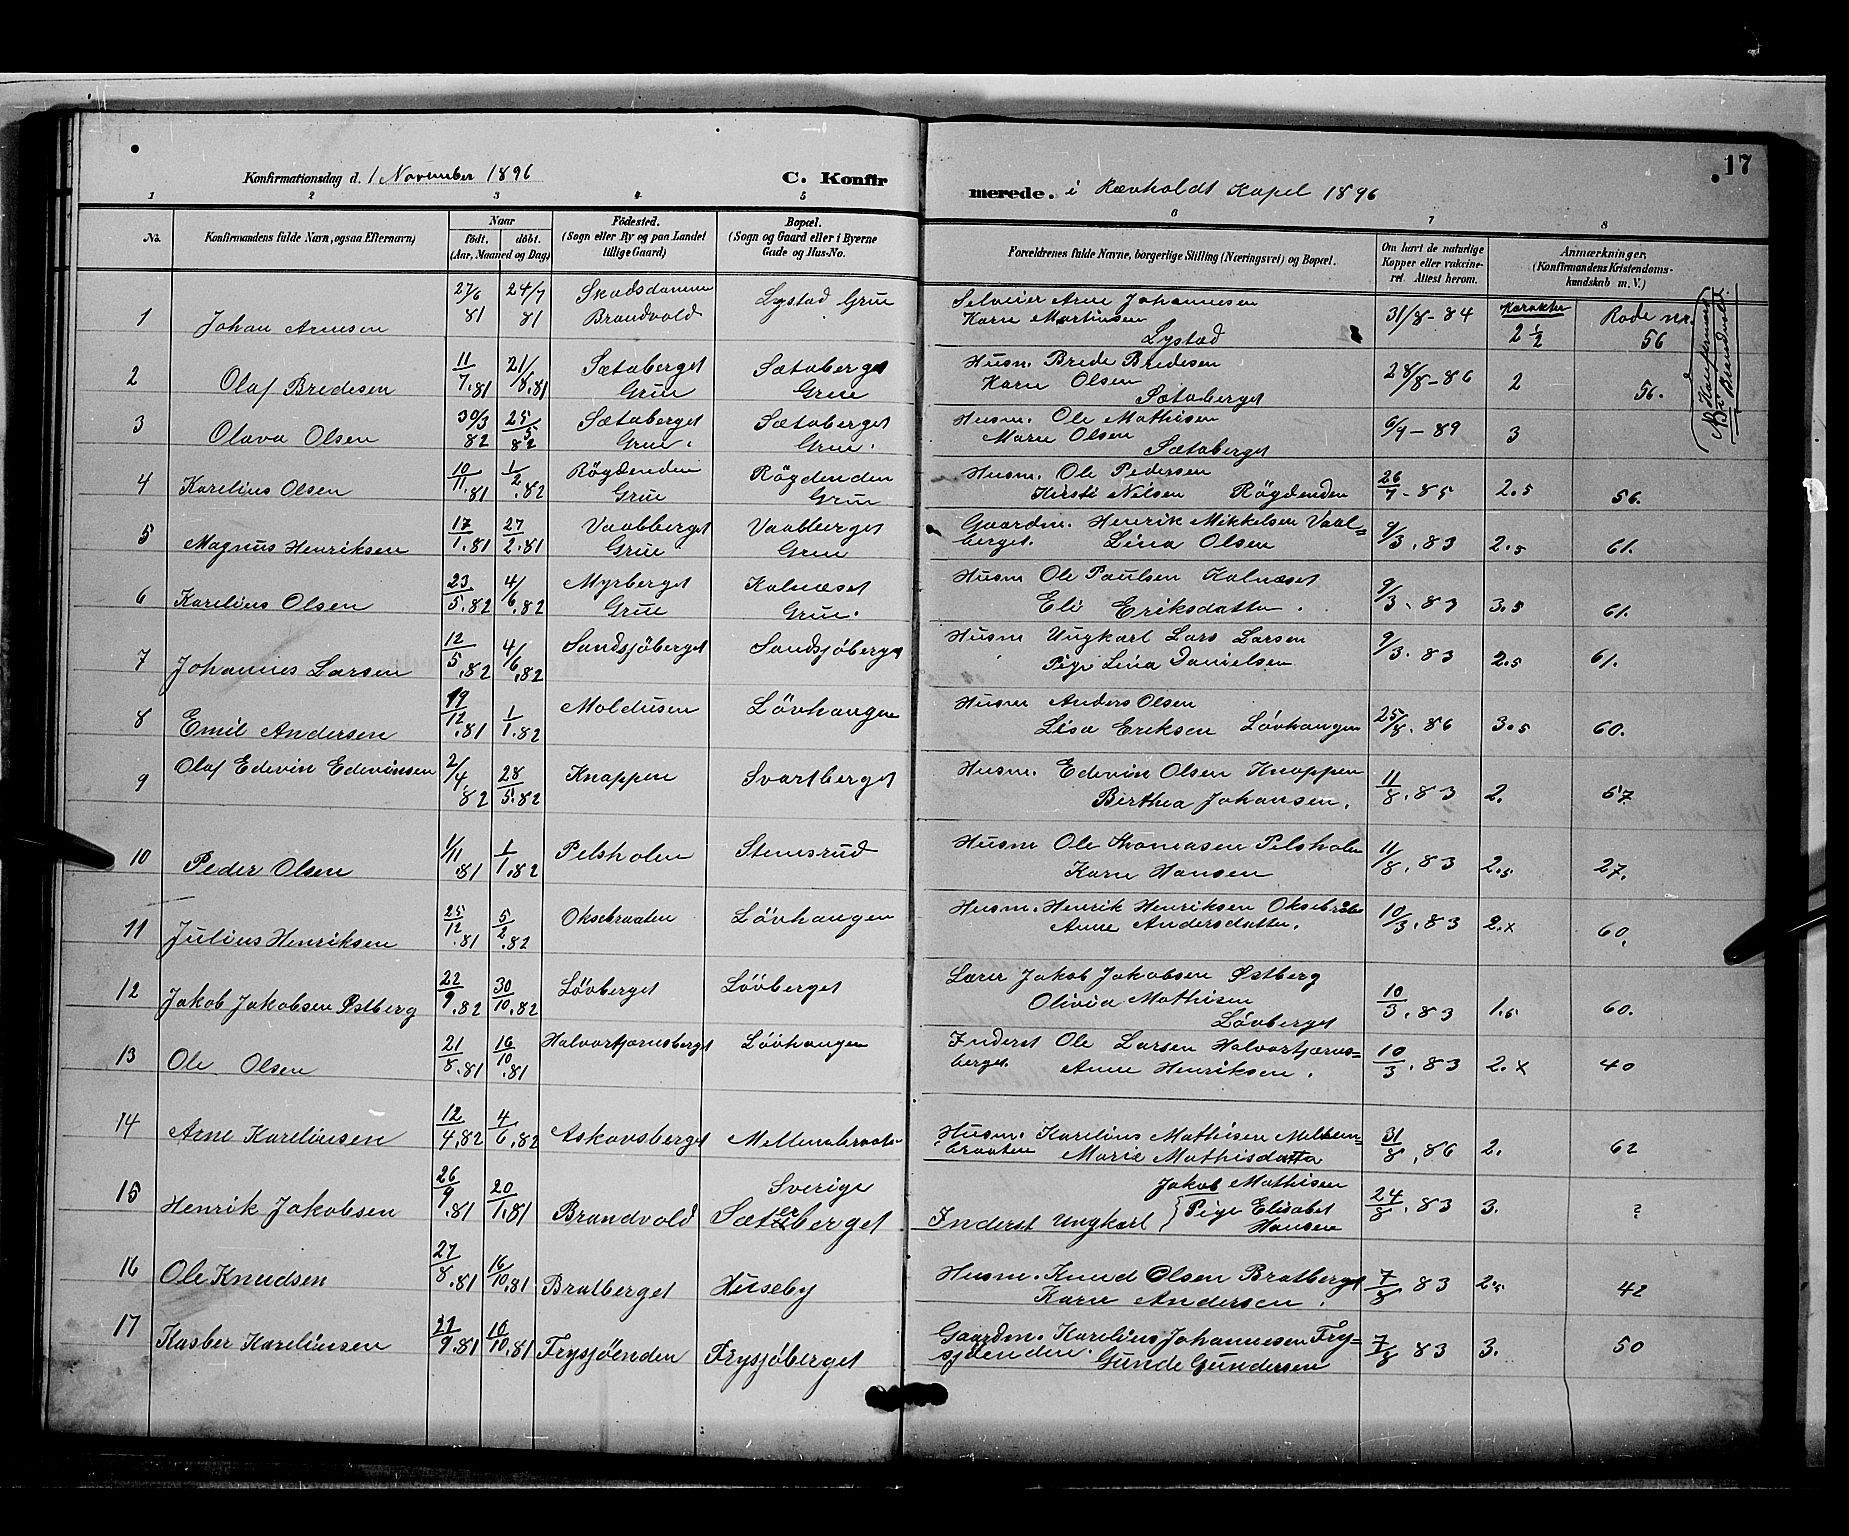 17
Konfirmationsdag d. 1 November 1896 C. Konfirmerede. i Revholdt Kapel 1896
1 2 3 4 5 6 7 8
No. Konfirmandens fulde Navn, ogsaa Efternavn) Naar født. døbt. (Aar, Maaned og Dag) Fødested. (Sogn eller By og paa Landet tillige Gaard) Bopæl. (Sogn og Gaard eller i Byerne Gade og Hus-No. Forældrenes fulde Navne, borgerlige Stilling (Næringsvei) og Bopæl. Om havt de naturlige Kopper eller vakcineret Attest herom. Anmærkninger. (Konfirmandens Kristendomskundskab m. V.)
Karakter Rode nr.
1 Johan Arnesen 27/6 81 24/7 81 Skadsdammen Brandvold Lystad Grue Selveier Arne Johannesen Karn Martinsen Lystad 31/8-84 2 1/2 56
2 Olaf Bredesen 11/7.81 21/8.81 Sætaberget Grue Sætaberget Grue Husm. Brede Bredesen Karn Olsen Sætaberget 28/8-86 2 56.
3 Olava Olsen 30/3 82 25/5 82 Sætaberget Grue. Sætaberget Grue. Husm. Ole Mathisen Marn Olsen Sætaberget 6/9-89 3
4 Karelius Olsen 10/11.81 1/2.82 Røgdenden Grue Røgdenden Grue Husm. Ole Pedersen Kirsti Nilsen Røgdenden 26/7-85 2.5 56.
5 Magnus Henriksen 17/1.81 27/2.81 Vaalberget Grue Vaalberget Grue Gaardm. Henrik Mikkelsen Vaal=berget. Lina Olsen 9/3.83 2.5 61.
6 Karelius Olsen 23/5.82 4/6.82 Myrberget Grue Kalnæset Grue. Husm Ole Paulsen Kalnæset Eli Eriksdatter. 9/3.83 3.5 61.
7 Johannes Larsen 12/5.82 4/6.82 Sandsjøberget Sandsjøberget Husm Ungkarl Lars Larsen Pige Lina Danielsen 9/3.83 2.5 61.
8 Emil Andersen 19/12.81 1/1.82 Moldusen Løvhaugen Husm Anders Olsen Lisa Eriksen Løvhaugen 25/8.86 3.5 60.
9 Olaf Edevin Edevinsen 2/4 82 28/5.82 Knappen Svartberget Husm. Edevin Olsen Knappen Birthea Johansen. 11/8.83 2. 67
10 Peder Olsen 1/11.81 1/1.82 Pelsholen Stemsrud Husm Ole Thomasen Pelsholen Karn Hansen 11/8.83 2.5 27.
11 Julius Henriksen 25/12.81 5/2.82 Oksebraaten Løvhaugen Husm. Henrik Henriksen Oksebråten Anne Andersdatter. 10/3.83 2.x 60.
12 Jakob Jakobsen Østberg 22/9.82 30/10.82 Løvberget Løvberget Lærer Jakob Jakobsen Østberg Olivia Mathisen Løvberget 10/3.83 1.5 60.
13 Ole Olsen 21/8.81 16/10.81 Halvortjernsberget Løvhaugen Inderst Ole Larsen Halvortjærns=berget. Anne Henriksen. 10/3.83 2.x 40
14 Arne Kareliusen 12/4.82 4/6.82 Askovsberget Mellembraaten Husm. Karelius Mathisen Mellem=braaten Marie Mathisdatter 31/8.86 2. 62
15 Henrik Jakobsen 26/9.81 20/1.81 Brandvold Sverige Sæterberget Inderst Ungkarl Jakob Mathisen Pige Elisabet Hansen 24/8.83 3. ?
16 Ole Knudsen 27/8.81 16/10.81 Bratberget Huseby Husm. Knud Olsen Bratberget Karn Andersen. 7/8 83 2.5 42
17 Kasber Kareliusen 21/9.81 16/10.81 Frysjøenden Frysjøberget Gaardm. Karelius Johannesen Fry=sjøenden. Gunde Gundersen 7/8 83 3. 50